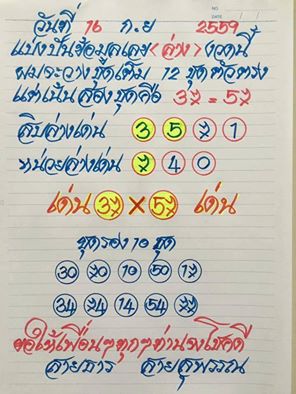 NO
DATE
วันที่ 16 ก.ย 2559
แบ่งปันข้อมูลเลข<ล่าง>งวดนี้
ผมจะวางชุดเต็ม 12 ชุดตัวตรง
แต่เน้นสองชุดคือ 37 = 57
สิบล่างเด่น 3 5 7 1
หน่วยล่างเด่น 7 4 0
เด่น 37 × 57 เด่น
ชุดรอง 10 ชุด
30 70 10 50 17
34 74 14 54 77
ขอให้เพื่อนๆทุกๆท่านจงโชคดี
สายธาร สายสุพรรณ